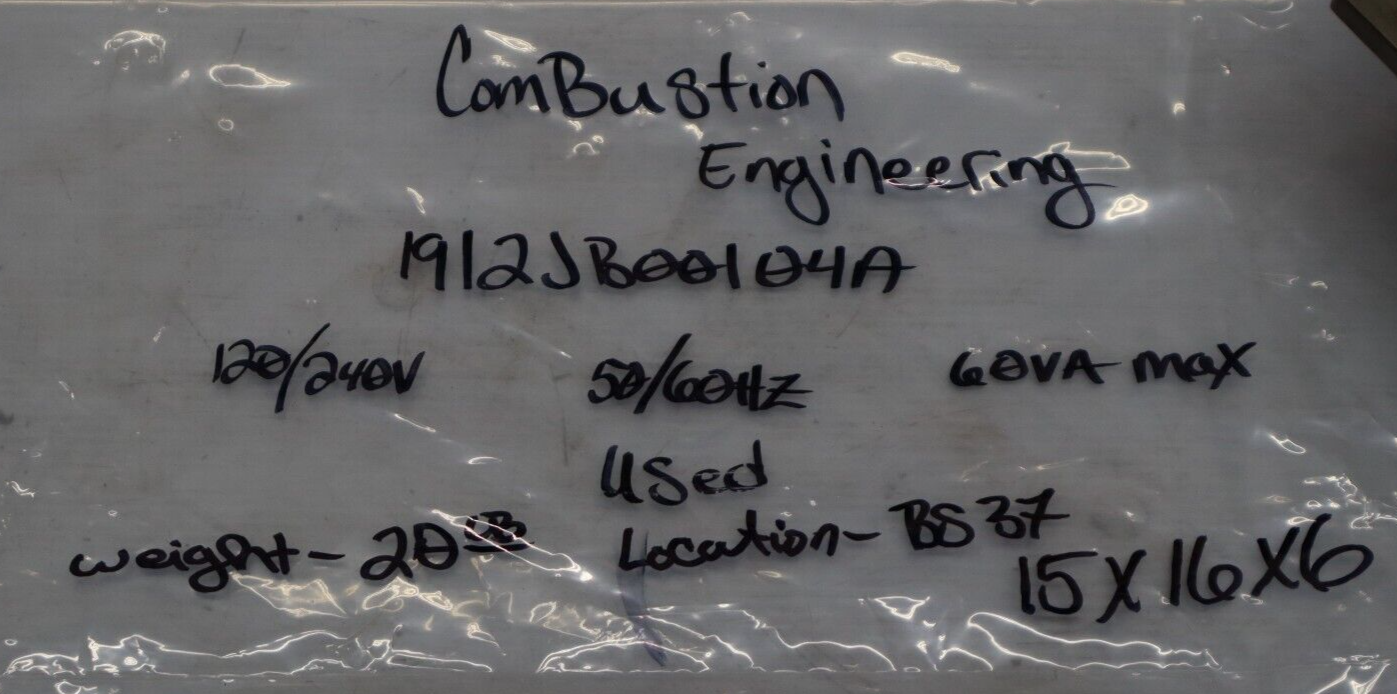 ComBustion
Engineering
1912JB00104A
120/240V 50/60HZ 60VA max
Used
weight- 20 LB Location- BS37
15X16X6